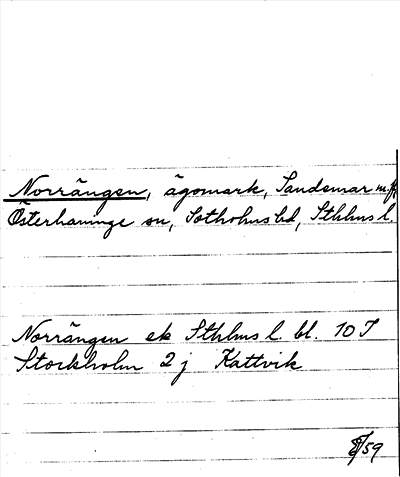 Norrängen, ägomark, Sandemar m.fl,
Österhaninge sn, Sotholms hd, Sthlms l.
Norrängen ek Sthlms l. bl. 10 I
Stockholm 2 j Kattvik
/59